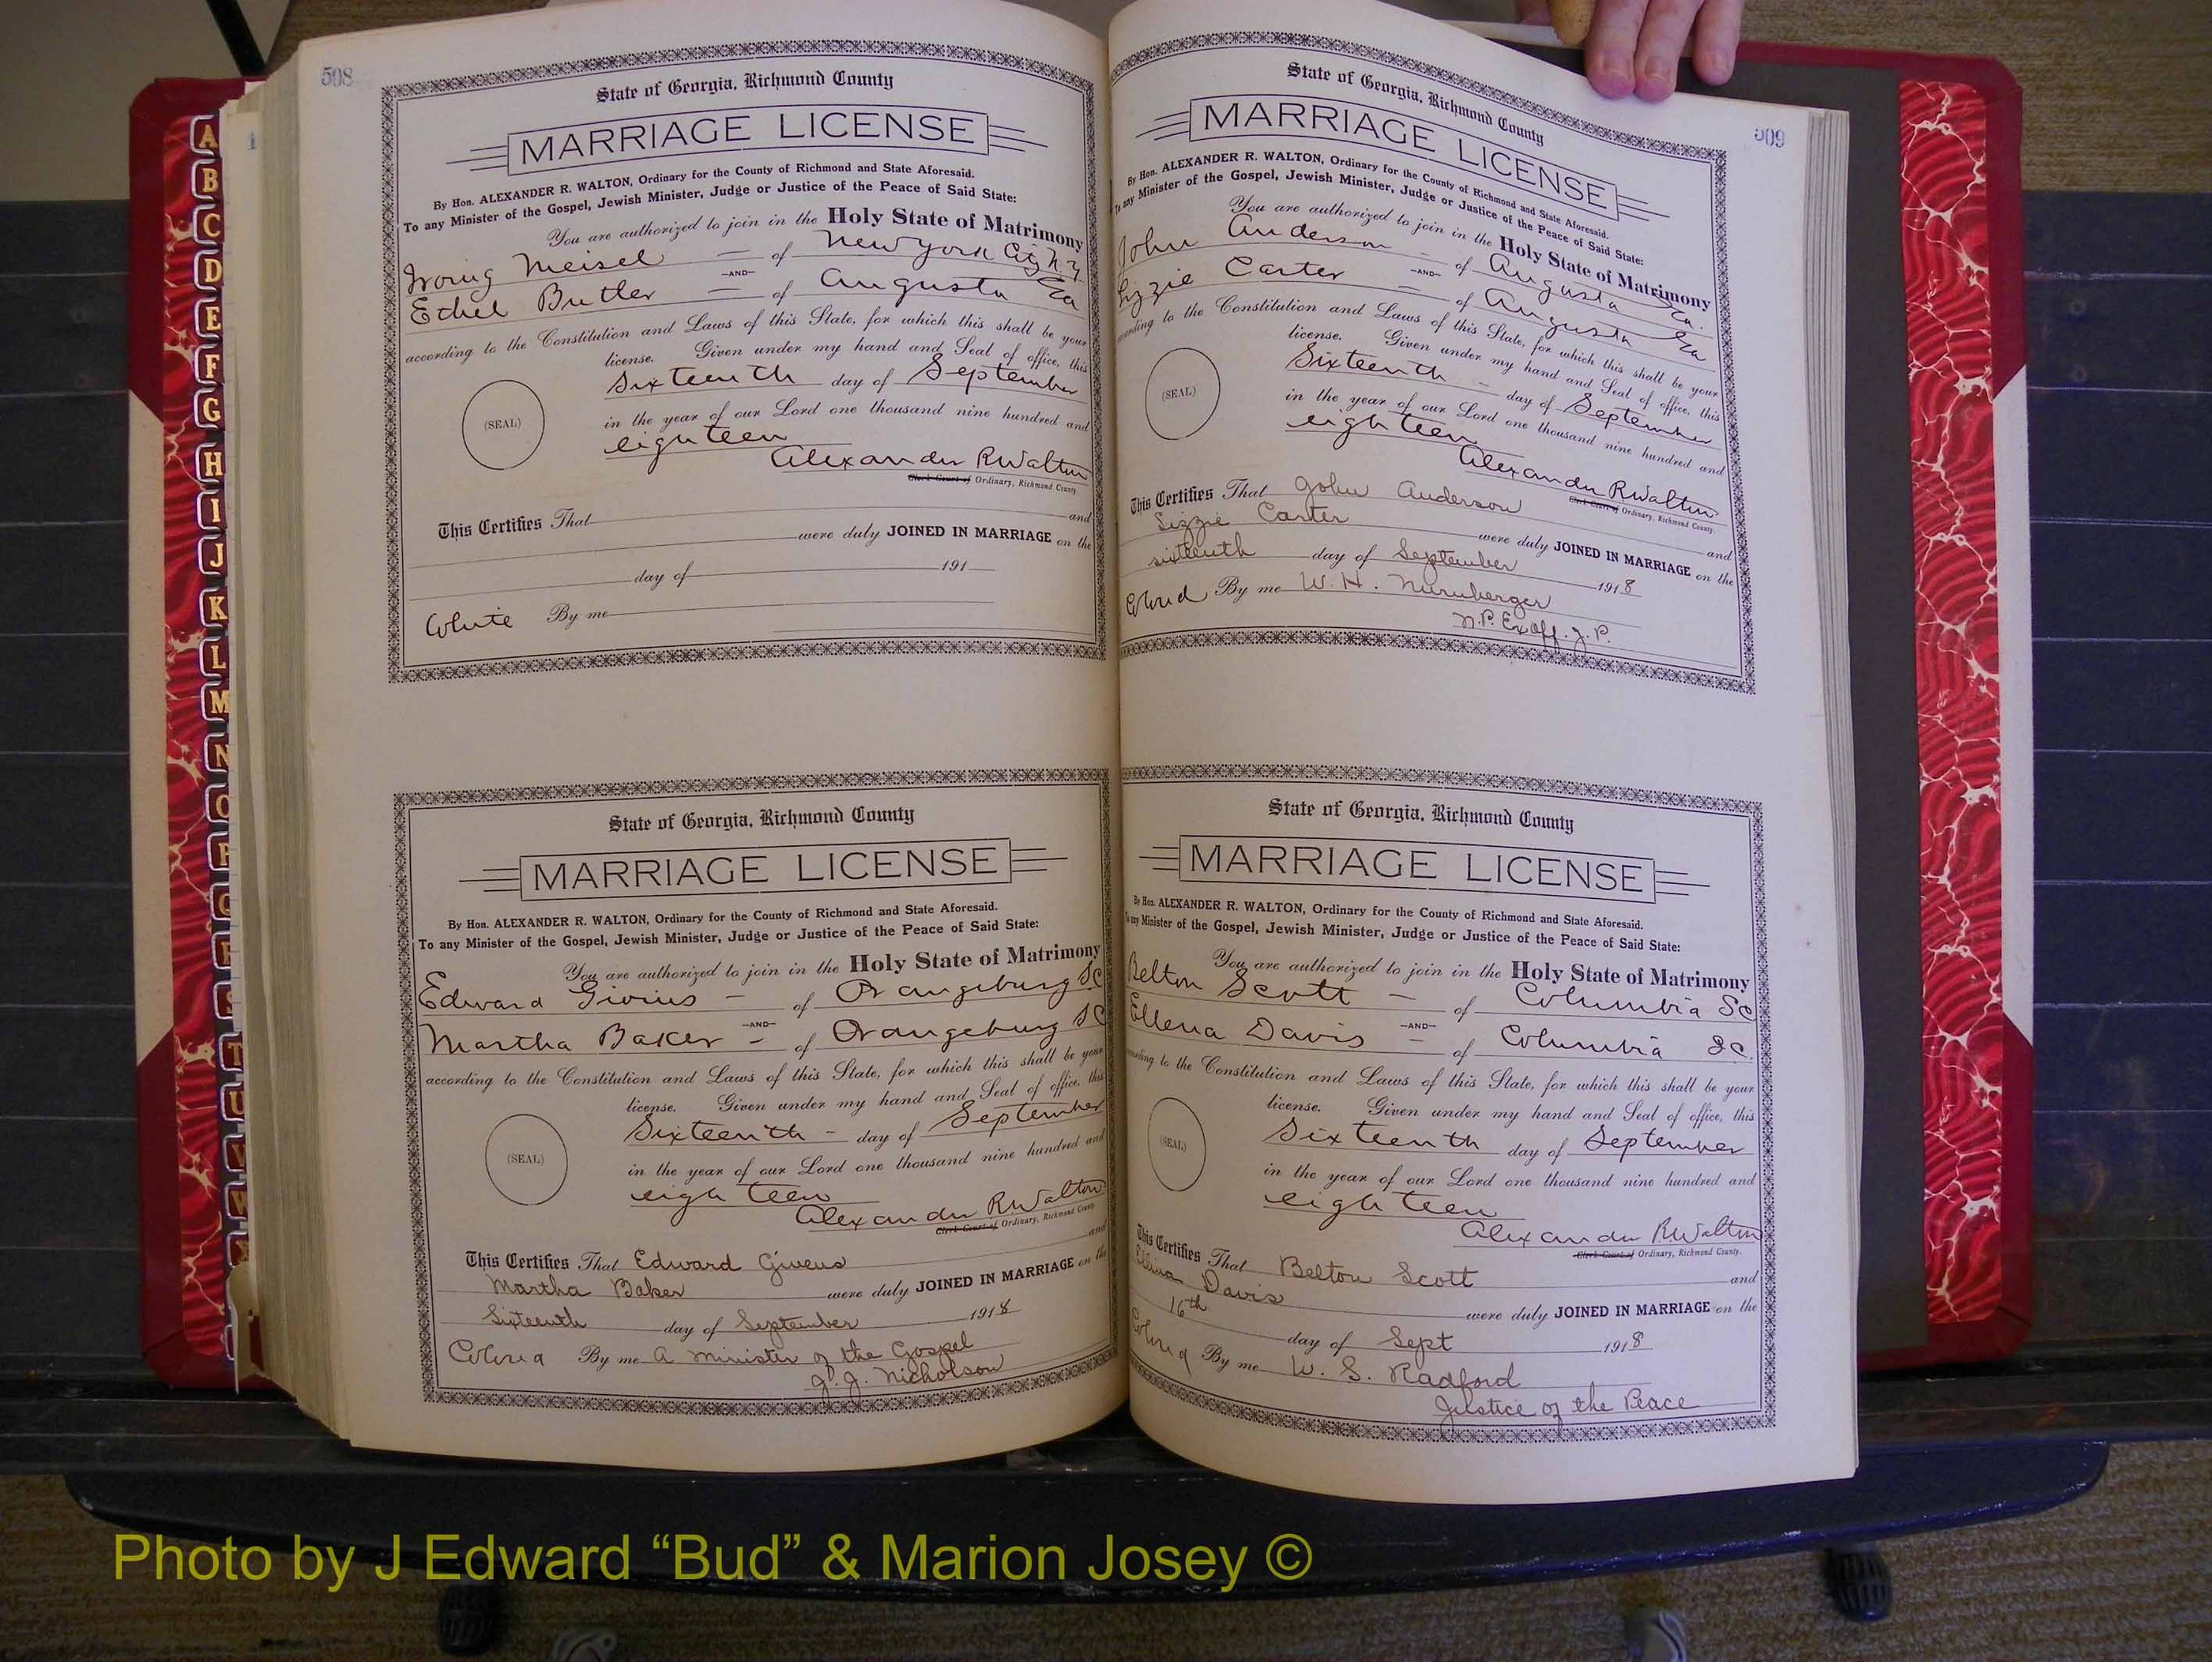 508
State of Georgia, Richmond County
MARRIAGE LICENSE
By Hon. ALEXANDER R. WALTON, Ordinary for the County of Richmond and State Aforesaid.
To any Minister of the Gospel, Jewish Minister, Judge or Justice of the Peace of Said State:
You are authorized to join in the Holy State of Matrimony
Irving Meisel — of New York City N.Y.
—AND—
Ethel Butler — of Augusta Ga
according to the Constitution and Laws of this State, for which this shall be your
license. Given under my hand and Seal of office, this
Sixteenth day of September
(SEAL)
in the year of our Lord one thousand nine hundred and
eighteen
Alexander R Walton
Clerk Court of Ordinary, Richmond County.
This Certifies That and
were duly JOINED IN MARRIAGE on the
day of 191
White By me
State of Georgia, Richmond County
MARRIAGE LICENSE
By Hon. ALEXANDER R. WALTON, Ordinary for the County of Richmond and State Aforesaid.
To any Minister of the Gospel, Jewish Minister, Judge or Justice of the Peace of Said State:
You are authorized to join in the Holy State of Matrimony
Edward Givins — of Orangeburg SC
—AND—
Martha Baker — of Orangeburg SC
according to the Constitution and Laws of this State, for which this shall be your
license. Given under my hand and Seal of office, this
Sixteenth — day of September
(SEAL)
in the year of our Lord one thousand nine hundred and
eighteen
Alexander R Walton
Clerk Court of Ordinary, Richmond County
This Certifies That Edward Givens and
Martha Baker were duly JOINED IN MARRIAGE on the
Sixteenth day of September 1918
Colored By me A Minister of the Gospel
J. J. Nicholson
509
State of Georgia, Richmond County
MARRIAGE LICENSE
By Hon. ALEXANDER R. WALTON, Ordinary for the County of Richmond and State Aforesaid.
To any Minister of the Gospel, Jewish Minister, Judge or Justice of the Peace of Said State:
You are authorized to join in the Holy State of Matrimony
John Anderson — of Augusta Ga.
—AND—
Lizzie Carter — of Augusta Ga
according to the Constitution and Laws of this State, for which this shall be your
license. Given under my hand and Seal of office, this
Sixteenth — day of September
(SEAL)
in the year of our Lord one thousand nine hundred and
eighteen
Alexander R Walton
Clerk Court of Ordinary, Richmond County.
This Certifies That John Anderson and
Lizzie Carter were duly JOINED IN MARRIAGE on the
sixteenth day of September 1918
Colored By me W. H. Nurnberger
N.P. Ex Off. J. P.
State of Georgia, Richmond County
MARRIAGE LICENSE
By Hon. ALEXANDER R. WALTON, Ordinary for the County of Richmond and State Aforesaid.
To any Minister of the Gospel, Jewish Minister, Judge or Justice of the Peace of Said State:
You are authorized to join in the Holy State of Matrimony
Belton Scott — of Columbia SC
—AND—
Ellena Davis — of Columbia S.C.
according to the Constitution and Laws of this State, for which this shall be your
license. Given under my hand and Seal of office, this
Sixteenth day of September
(SEAL)
in the year of our Lord one thousand nine hundred and
eighteen
Alexander R Walton
Clerk Court of Ordinary, Richmond County.
This Certifies That Belton Scott and
Ellena Davis were duly JOINED IN MARRIAGE on the
16th day of Sept 1918
Colored By me W. S. Radford
Justice of the Peace
A
B
C
D
E
F
G
H
I
J
K
L
M
N
O
P
Q
R
S
T
U
V
W
X
Photo by J Edward “Bud” & Marion Josey ©